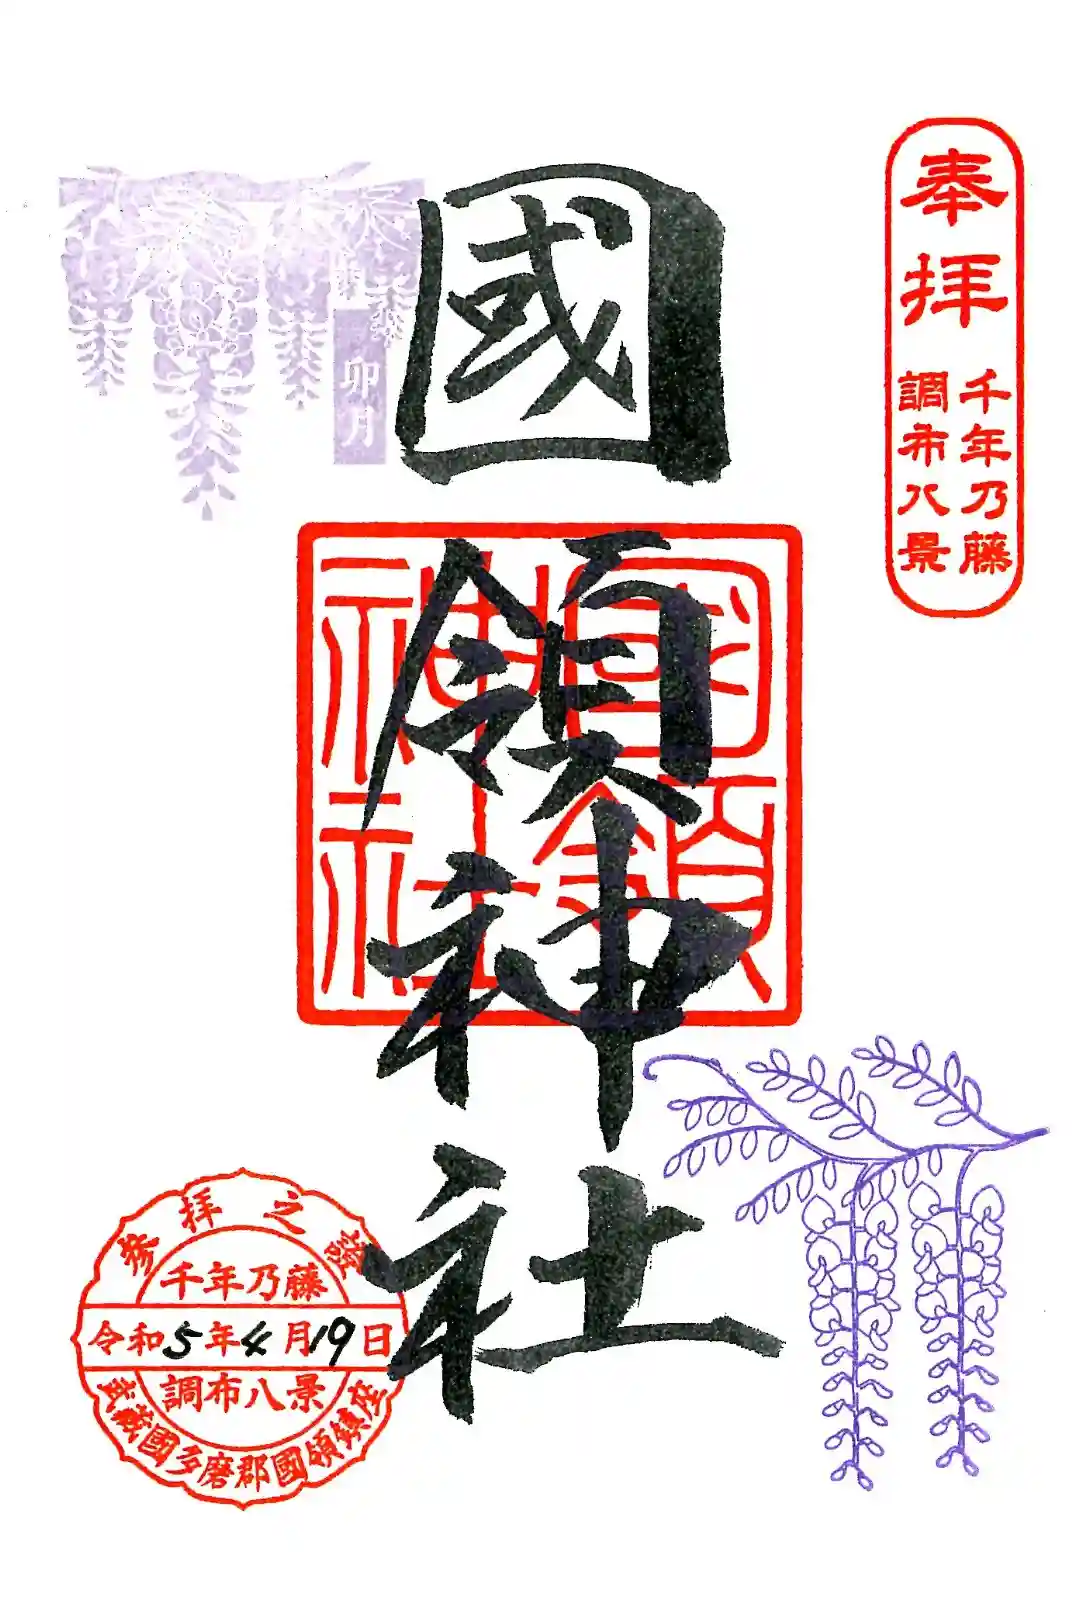 奉拝
千年乃藤
調布八景
國領神社
國領
神社
卯月
參拝之證
千年乃藤
令和5年4月19日
調布八景
武蔵國多磨郡國領鎮座